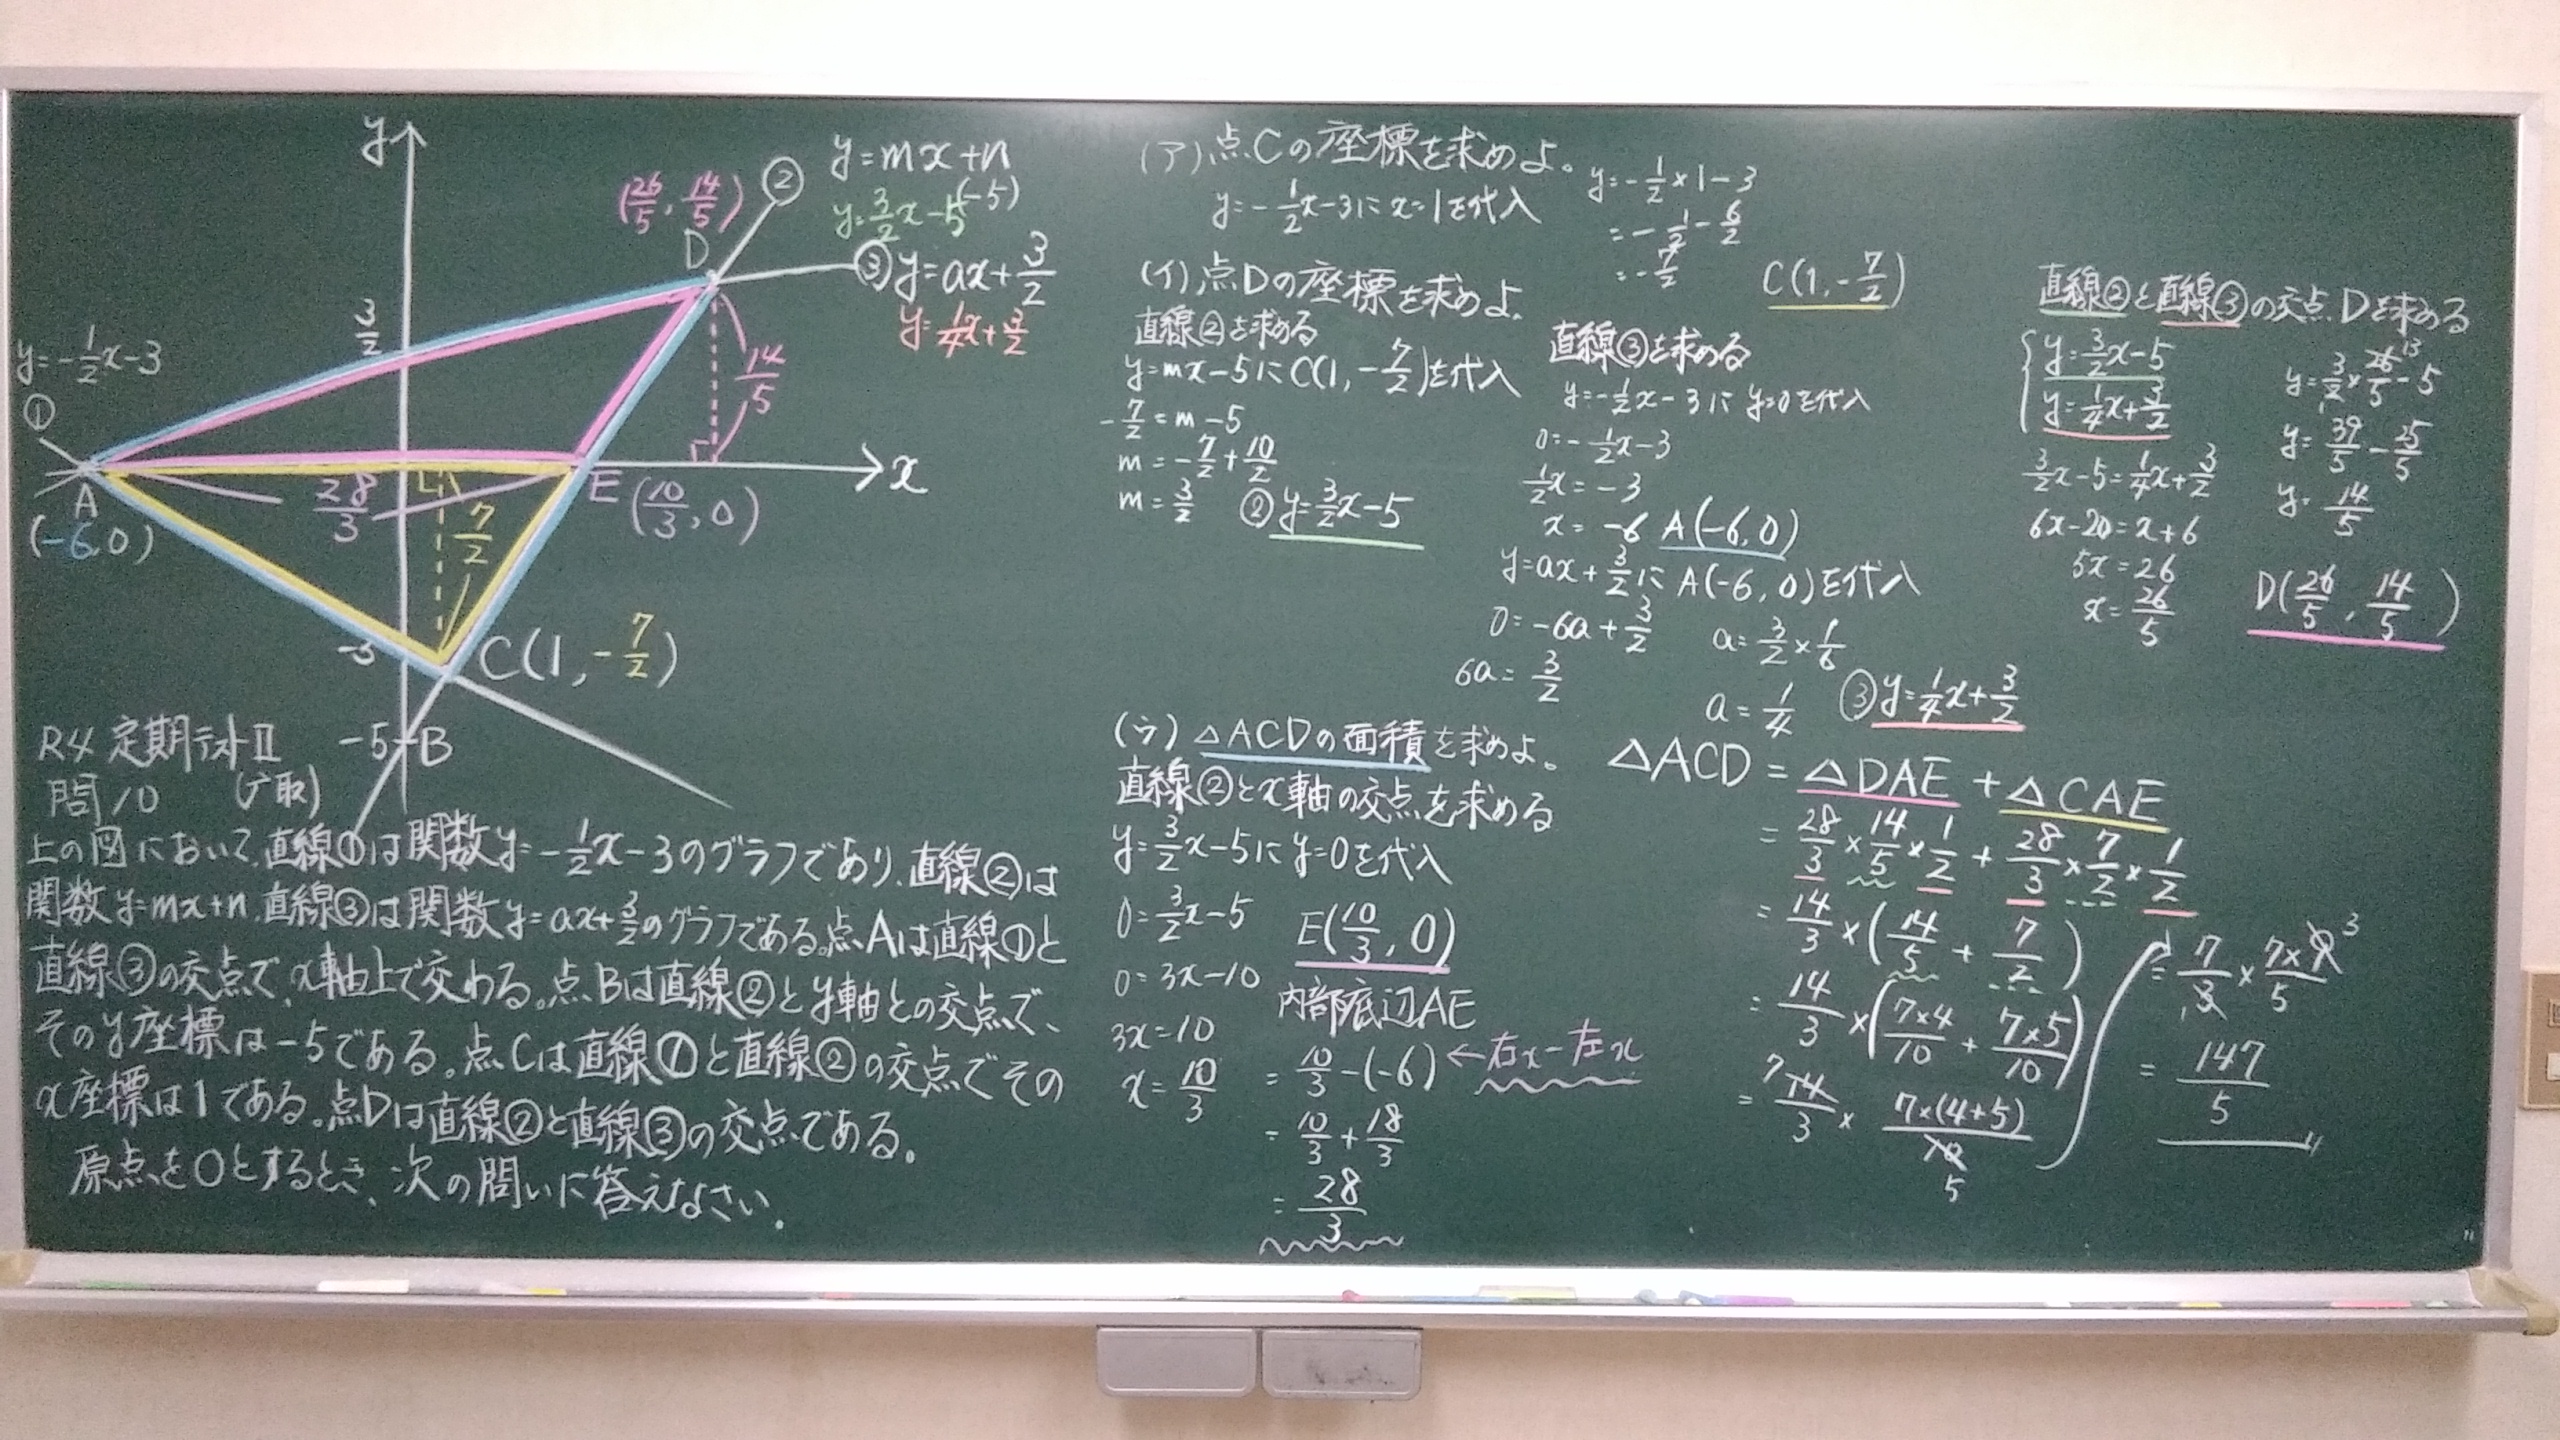 y
(26/5, 14/5)
②
y=mx+n
(-5)
y=3/2x-5
D
③ y=ax+3/2
y=1/4x+3/2
3/2
y=-1/2x-3
①
14/5
x
A
(-6,0)
28/3
E(10/3,0)
7/2
-3
C(1,-7/2)
-5
B
R4 定期テストⅡ
問10
上の図において、直線①は関数y=-1/2x-3のグラフであり、直線②は
関数y=mx+n、直線③は関数y=ax+3/2のグラフである。点Aは直線①と
直線③の交点で、x軸上で交わる。点Bは直線②とy軸との交点で、
そのy座標は-5である。点Cは直線①と直線②の交点でその
x座標は1である。点Dは直線②と直線③の交点である。
原点を0とするとき、次の問いに答えなさい。
(ア)点Cの座標を求めよ。
y=-1/2x-3にx=1を代入
y=-1/2×1-3
=-1/2-6/2
=-7/2
C(1,-7/2)
(イ)点Dの座標を求めよ。
直線②を求める
y=mx-5にC(1,-7/2)を代入
-7/2=m-5
m=-7/2+10/2
m=3/2
②y=3/2x-5
直線③を求める
y=-1/2x-3にy=0を代入
0=-1/2x-3
1/2x=-3
x=-6 A(-6,0)
y=ax+3/2にA(-6,0)を代入
0=-6a+3/2
6a=3/2
a=3/2×1/6
a=1/4
③y=1/4x+3/2
直線②と直線③の交点Dを求める
{y=3/2x-5
y=1/4x+3/2
3/2x-5=1/4x+3/2
6x-20=x+6
5x=26
x=26/5
y=3/2×26/5-5
13
1
y=39/5-25/5
y=14/5
D(26/5,14/5)
(ウ)△ACDの面積を求めよ。
直線②とx軸の交点を求める
y=3/2x-5にy=0を代入
0=3/2x-5
0=3x-10
3x=10
x=10/3
E(10/3,0)
内部底辺AE
=10/3-(-6)←右x-左x
=10/3+18/3
=28/3
△ACD=△DAE+△CAE
=28/3×14/5×1/2+28/3×7/2×1/2
=14/3×(14/5+7/2)
=14/3×(7×4/10+7×5/10)
=14/3×7×(4+5)/10
7
5
=7/3×7×9/5
3
1
=147/5